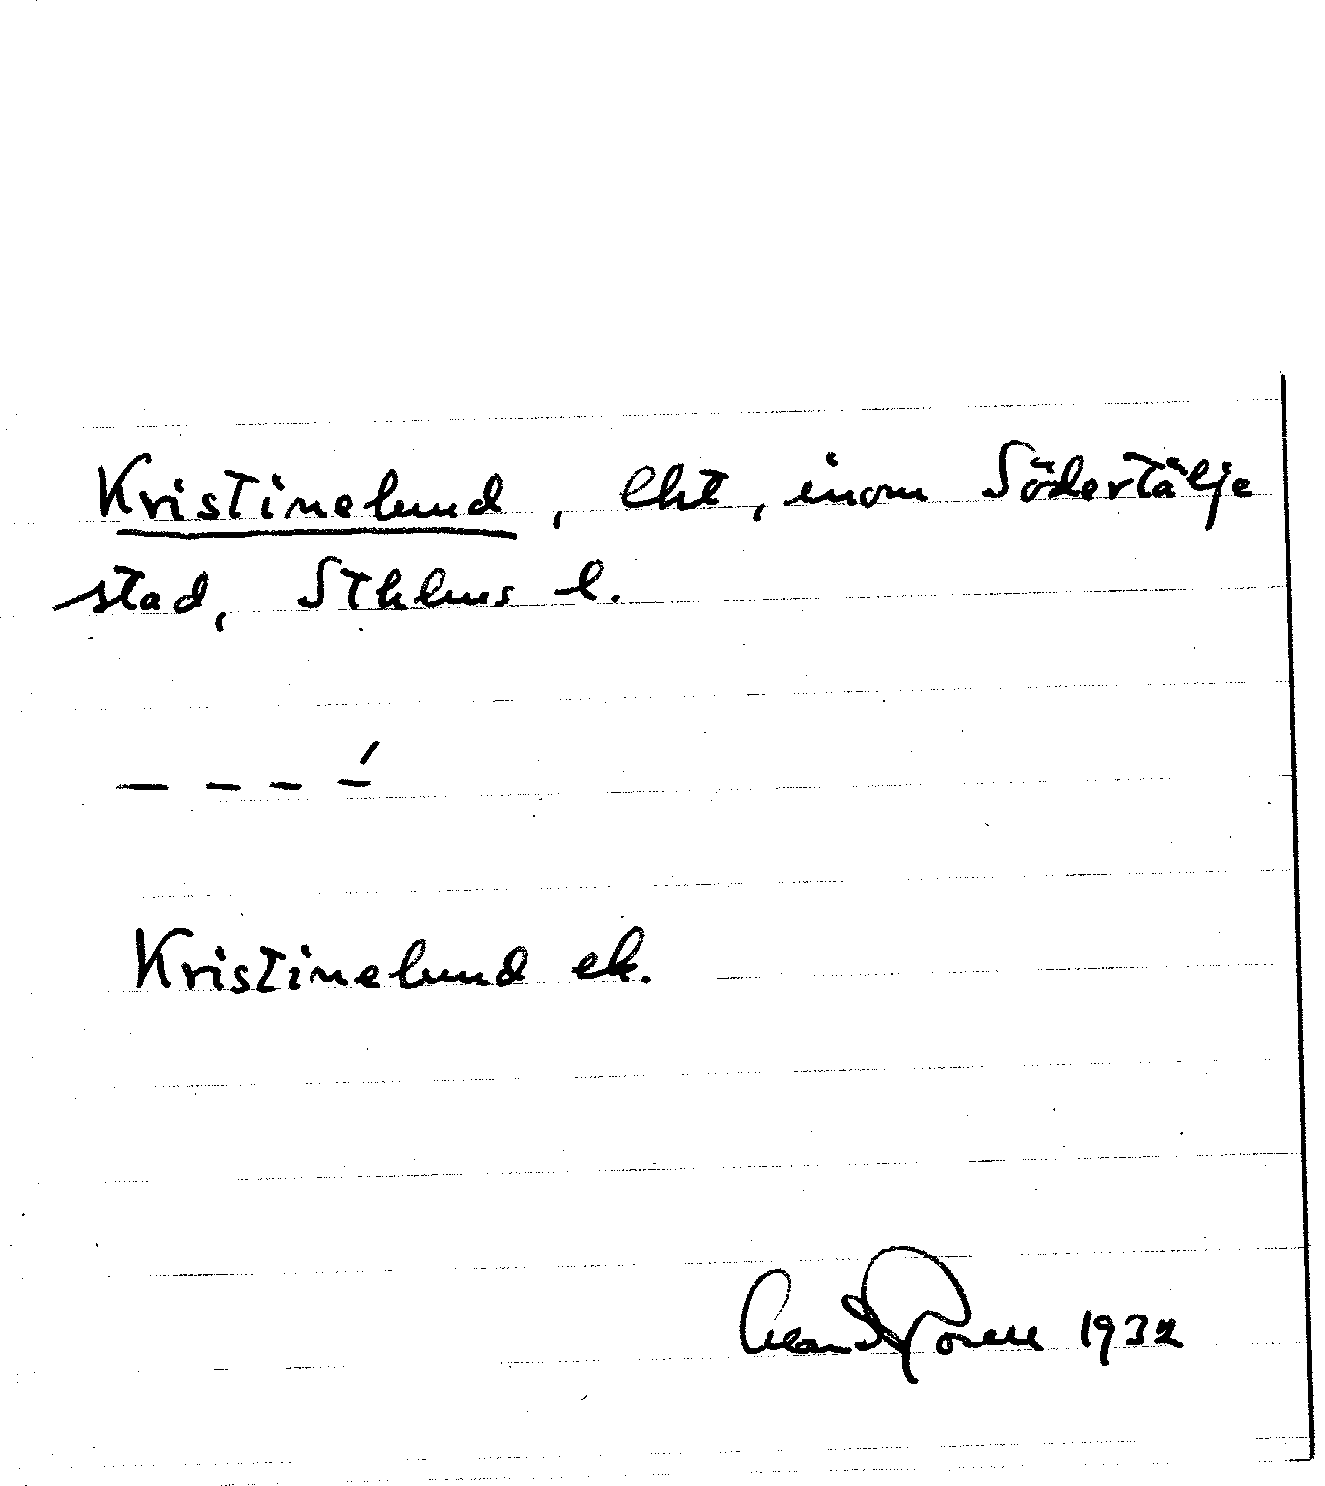 Kristinelund, lht, inom Södertälje
stad, Sthlms l.
— – – –́
Kristinelund ek.
1932